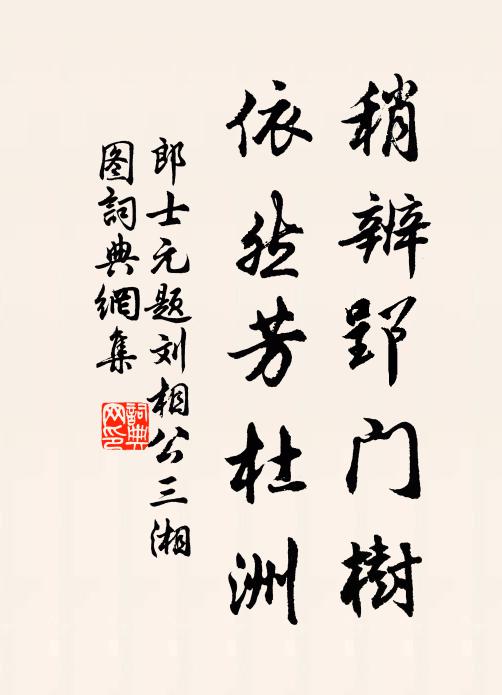 稍辨郢门樹
依然芳杜洲
郎士元题刘相公三湘
图詞典網集
詞典
网印